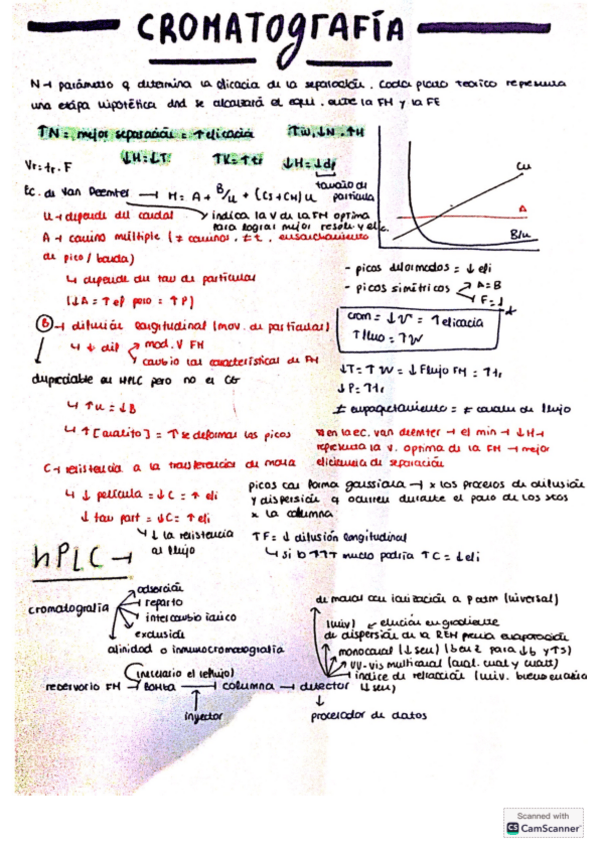 CROMATOGRAFÍA
N→ parámetro q determina la eficacia de la separación. Cada plato teórico representa
una etapa hipotética dnd se alcanzará el equi. entre la FM y la FE
↑N = mejor separación = ↑eficacia ↑W, ↓N, ↑H
Vr = tr . F ↓H = ↓T ↑K = ↑tr ↓H = ↓dp
tamaño de partícula
Ec. de Van Deemter → H = A + B/u + (Cs + CM) u
u → depende del caudal indica la V de la FM optima
para lograr mejor resolu y efic.
A → camino múltiple (≠ caminos, ≠ t, ensanchamiento
de pico / banda)
↳ depende del tam de partículas
(↓A = ↑ef pero = ↑P)
Cu
A
B/u
- picos deformados = ↓efi
- picos simétricos A=B
F=1
B → difusión longitudinal (mov. de partículas)
↳ ↓ dif mod. V FM
cambio las características de FM
despreciable en HPLC pero no el CG
↳ ↑u = ↓B
↳ ↑[analito] = ↑ se deforman los picos
crom = ↓V = ↑eficacia
↑flujo = ↑W
↓T = ↑W = ↓Flujo FM = ↑tr
↓P = ↑tr
≠ empaquetamiento = ≠ canales de flujo
en la ec. van deemter → el min → ↓H →
representa la v. optima de la FM → mejor
eficiencia de separación
C → resistencia a la transferencia de masa
↳ ↓ película = ↓C = ↑ efi
↓ tam part = ↓C = ↑efi
↳ ↓ la resistencia
al flujo
picos con forma gaussiana → x los procesos de difusión
y dispersión q ocurren durante el paso de los
x la columna
TF = ↓ difusión longitudinal
↳ si b ↑↑↑ mucho podría ↑C = ↓efi
HPLC →
cromatografía
adsorción
reparto
intercambio iónico
exclusión
afinidad o inmunocromatografía
(necesario el reflujo)
reservorio FM → bomba → columna → detector
inyector
procesador de datos
de masas con ionización a P atm (universal)
(univ) elución en gradiente
de dispersión de la REM previa evaporación
monocanal (↓sen) (b ó z para ↓b y ↑s)
UV-vis multicanal (cual. cual y cuant)
índice de refracción (univ.
(↓sen)
Scanned with
CS CamScanner